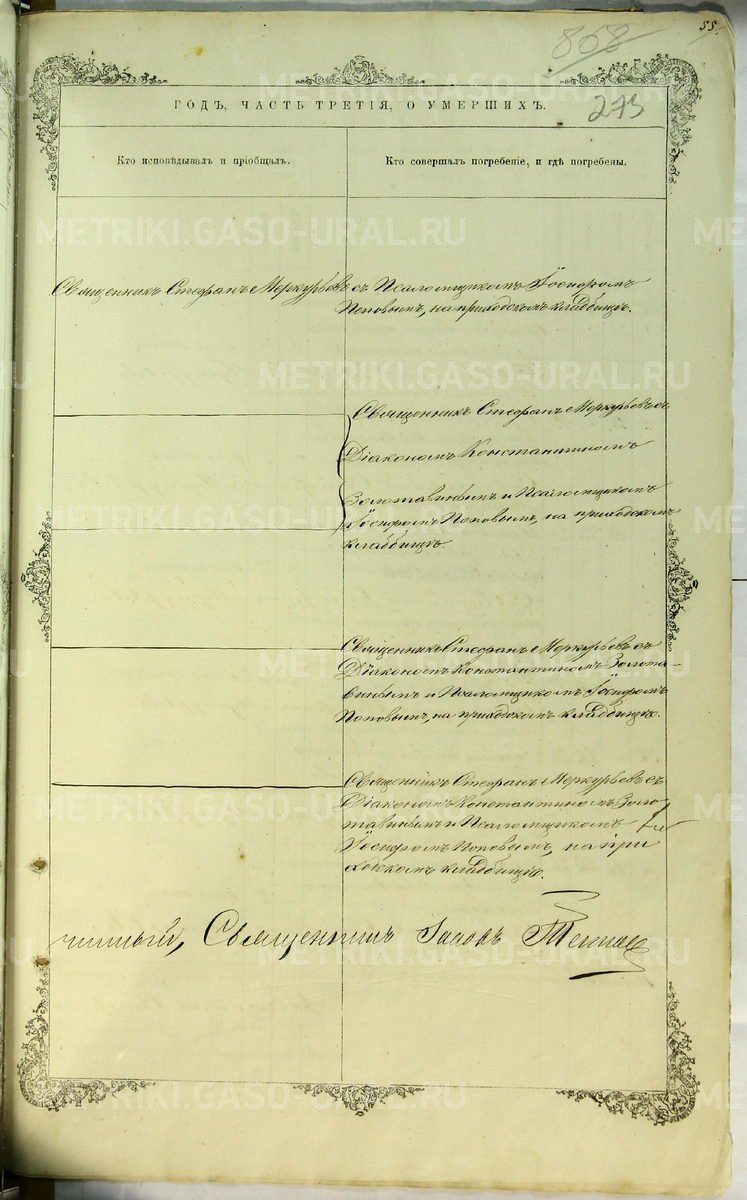 55.
868
273
ГОДЪ, ЧАСТЬ ТРЕТІЯ, О УМЕРШИХЪ.
Кто исповѣдывалъ и пріобщалъ.
Кто совершалъ погребеніе, и гдѣ погребены.
Священникъ Стефанъ Меркурьевъ съ Псаломщикомъ Іосифомъ
Поповымъ, на приходскомъ кладбищѣ.
Священникъ Стефанъ Меркурьевъ съ
Діакономъ Константиномъ
Золотавинымъ и Псаломщикомъ
Іосифомъ Поповымъ, на приходскомъ
кладбищѣ.
Священникъ Стефанъ Меркурьевъ съ
Діакономъ Константиномъ Золота-
винымъ и Псаломщикомъ Іосифомъ
Поповымъ, на приходскомъ кладбищѣ.
Священникъ Стефанъ Меркурьевъ съ
Діакономъ Константиномъ Золо-
тавинымъ и Псаломщикомъ
Іосифомъ Поповымъ, на при
ходскомъ кладбищѣ.
чинный, Священникъ
METRIKI.GASO-URAL.RU